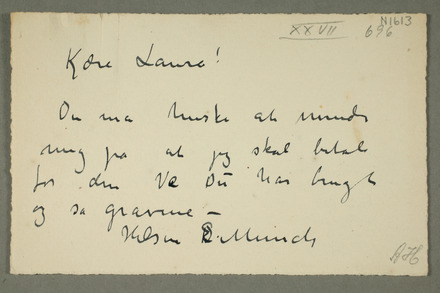 N1613
XXVII 696
Kære Laura!
Du ma huske at minde
mig pa at jeg skal betale
for den Ve Du har brugt
og sa gravene –
Hilsen E. Munch
AH